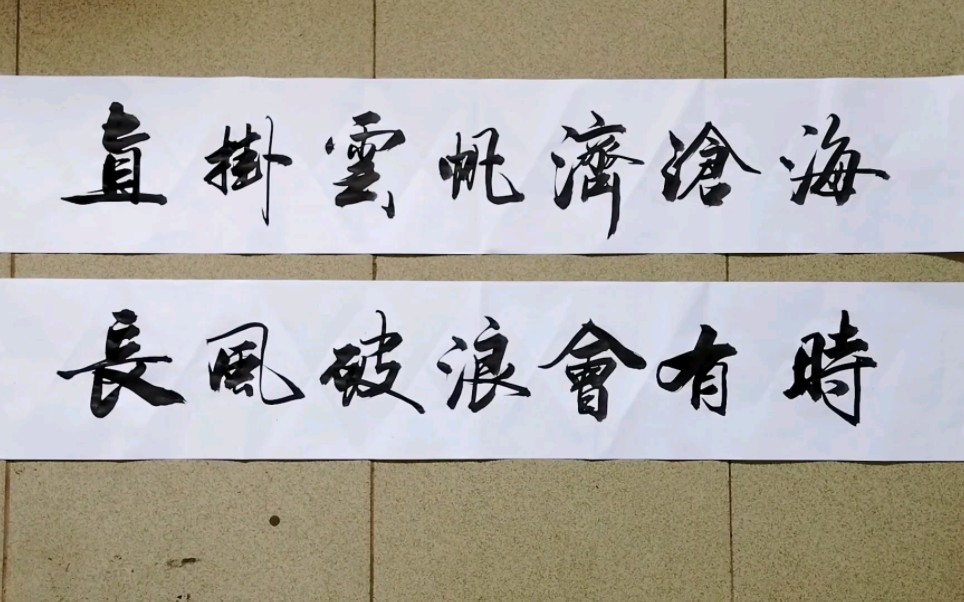 直掛雲帆濟滄海
長風破浪會有時